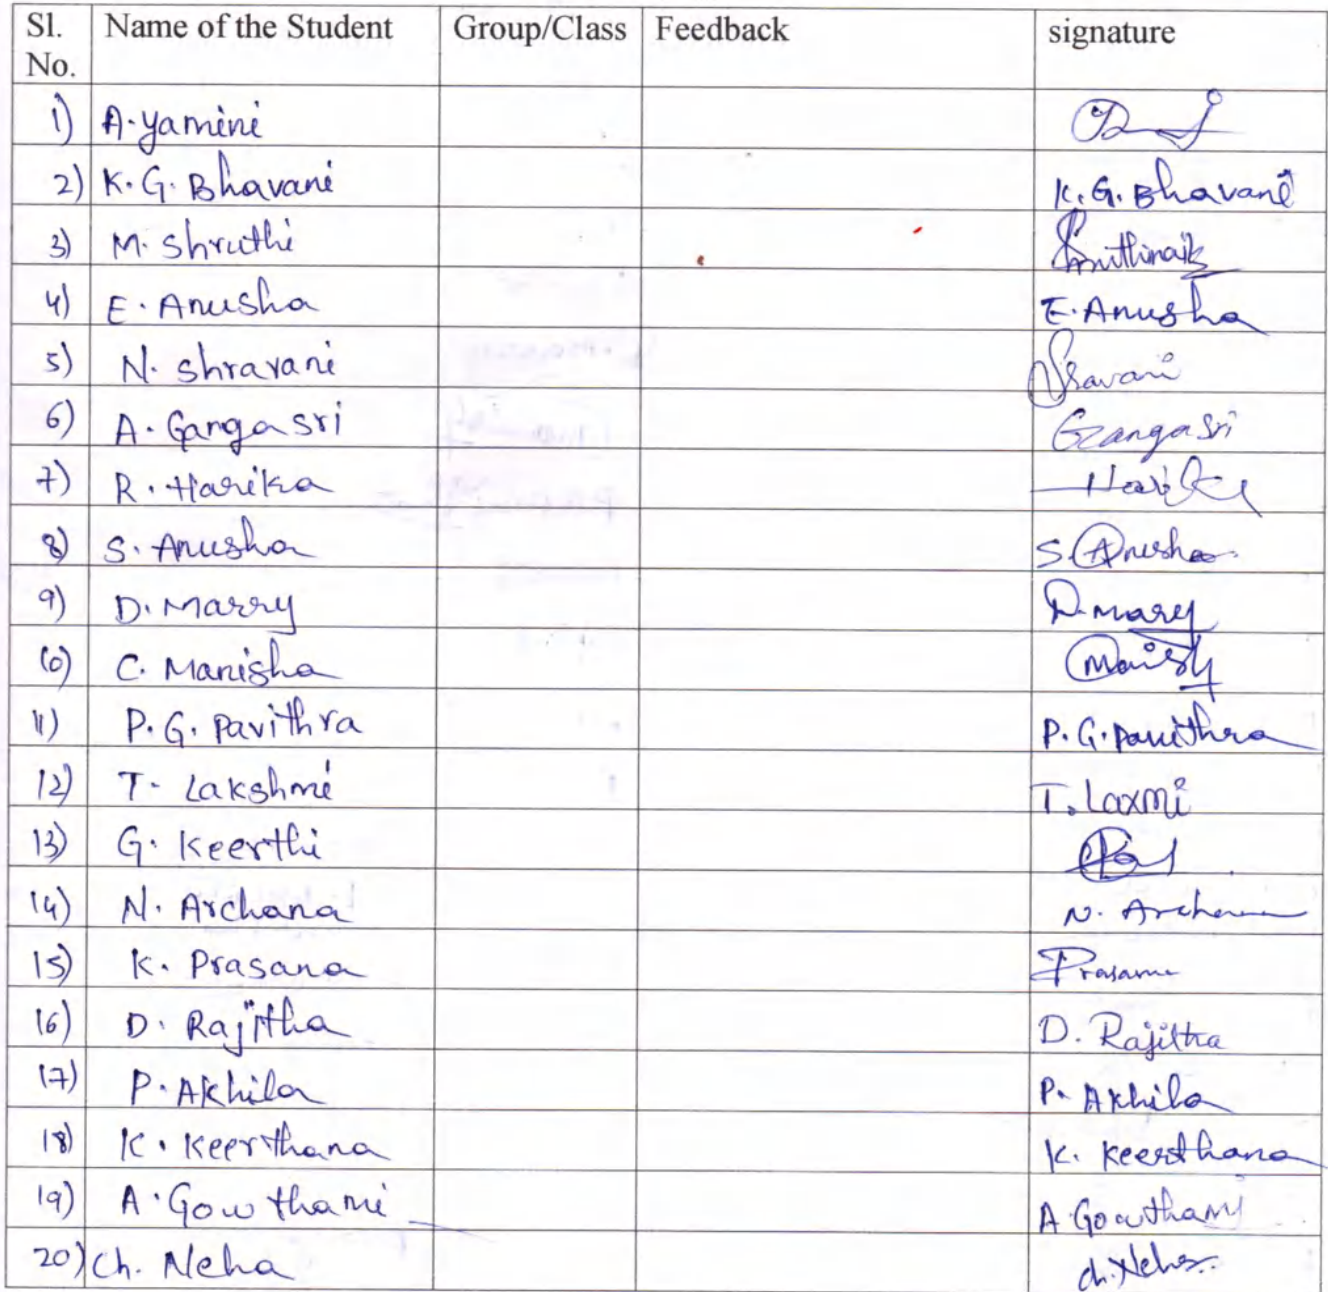 Sl. No. Name of the Student Group/Class Feedback signature
1) A. yamini
2) K. G. Bhavani K. G. Bhavani
3) M. Shruthi Sruthinaik
4) E. Anusha E. Anusha
5) N. Shravani Sravani
6) A. Ganga sri Ganga Sri
7) R. Harika Harika
8) S. Anusha S. Anusha
9) D. Marry D. mary
10) C. Manisha
11) P. G. Pavithra P. G. pavithra
12) T. Lakshmi T. Laxmi
13) G. Keerthi
14) N. Archana N. Archana
15) K. Prasana Prasana
16) D. Rajitha D. Rajitha
17) P. Akhila P. Akhila
18) K. Keerthana K. Keerthana
19) A. Gowthami A Gowthami
20) Ch. Neha ch. Neha